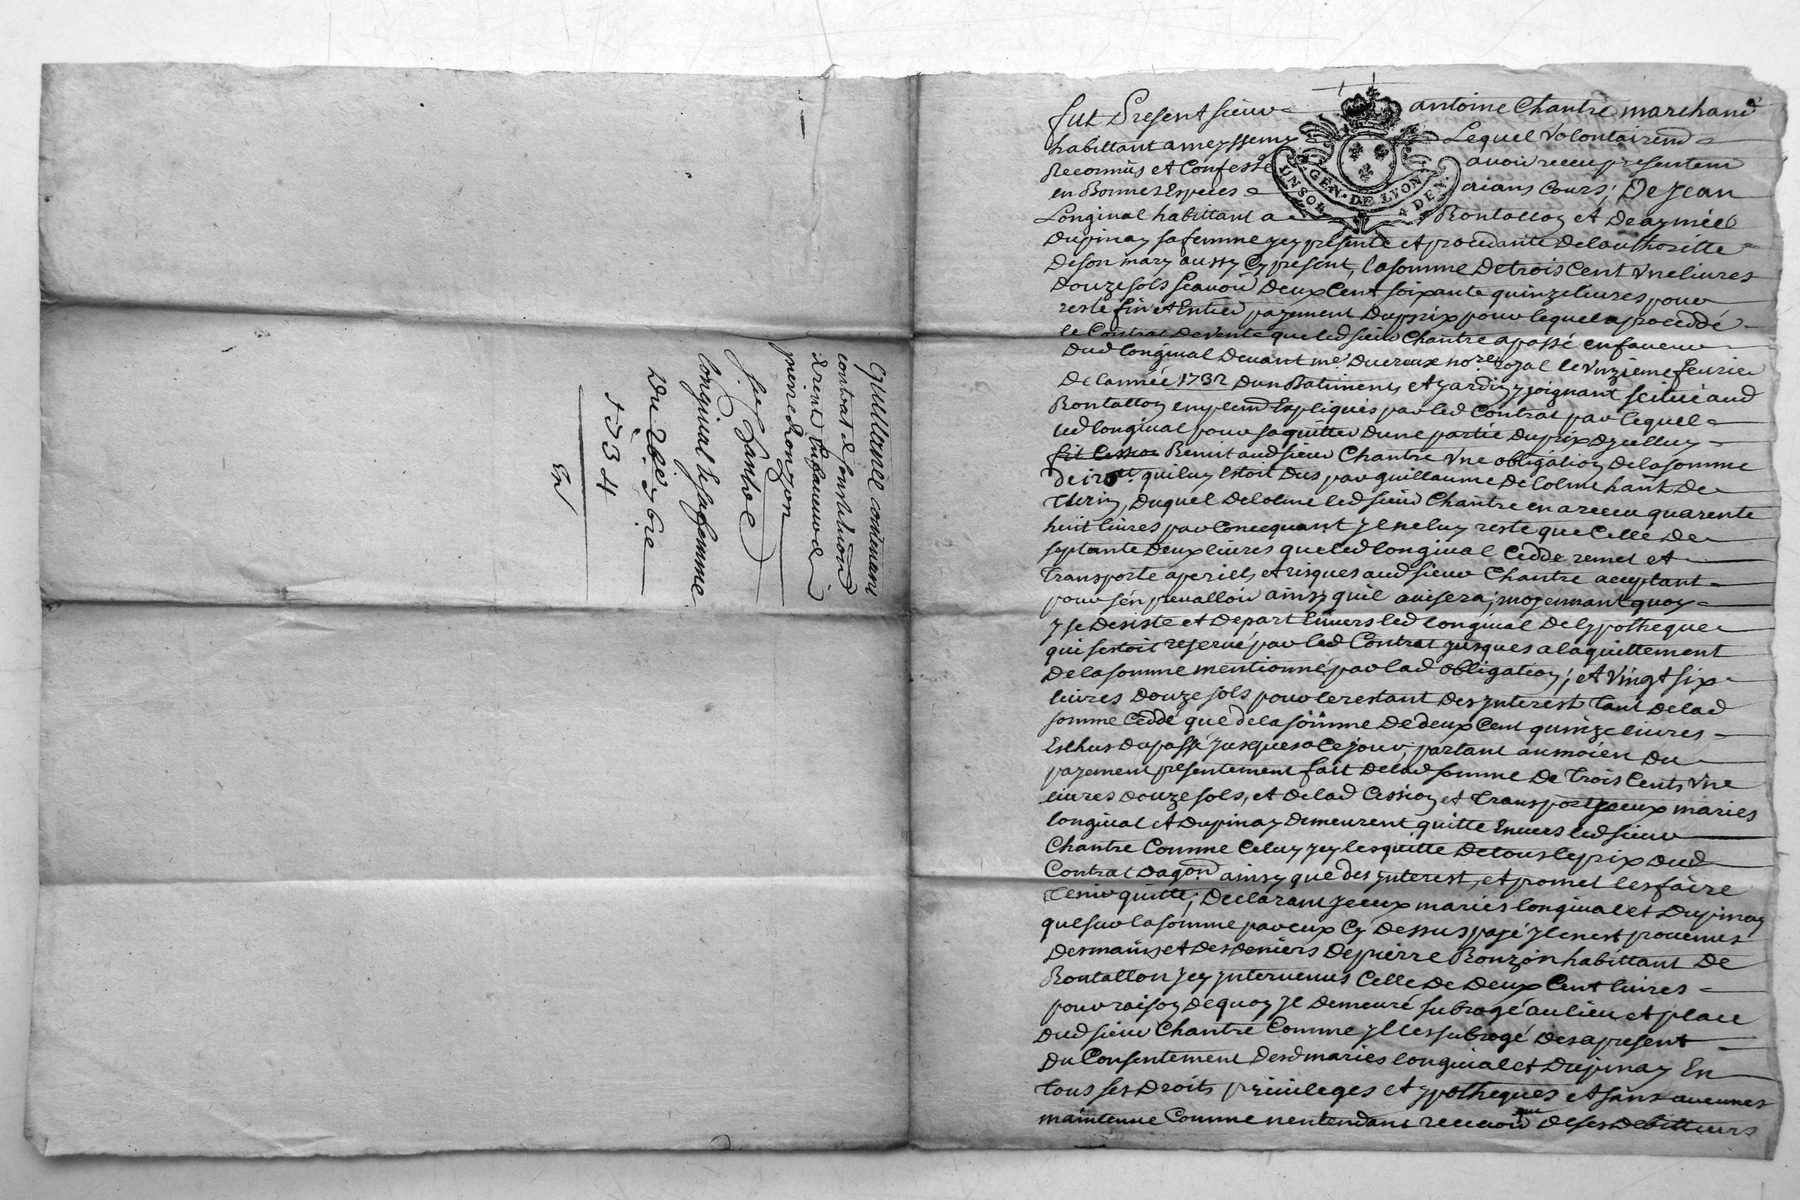 quittance contenant
contrat de constitution
de rente en faveur de
pierre Ronzon
Sr Chantre
longival & sa femme
Du 2e 8bre
1734
fut Present sieur antoine Chantre marchand
habittant a meyssemy Lequel volontairemt
Reconnus et Confessé avoir receu presentem
en Bonnes Especes aians Cours, De Jean
Longival habittant a Rontallon et De aymée
Dupinay sa femme jcy presente et procedante de lauthoritte
De son mary aussy Cy present, la somme De trois Cent vne liures
Douze sols scauoir Deux Cent soixante quinze liures pour
reste fin et Entier payement Du prix pour lequel a procéddé
le Contrat de vente que led sieur Chantre a passé en faueur
Dud longival Deuant me Ducreux nore royal le feurier
De lannée 1732 Dun batiment, et jardin y joignant scitué aud
Rontallon Expliqués par led Contrat par lequel
led longival pour saquitter Dune partie Du prix Dycelluy
Remit aud sieur Chantre vne obligation De la somme
De 120 ll qui luy Estoit Dus par guillaume De Colme hant De
Therin, Duquel Delolme led sieur Chantre en a receu quarente
huit liures par Consecquant jl ne luy reste que Celle De
septante Deux liures que led longival Cedde remet et
Transporte a perils et risques aud sieur Chantre aceptant
pour sen prevalloir ainsy quil auisera; moyennant quoy
y se Desiste et Depart Enuers led longival De lypotheque
qui sestoit reserué par led Contrat jusques a laquittement
De la somme mentionné par lad obligation; et vingt six
liures Douze sols pour le restant Des jnterest tant De lad
somme Ceddé que de la somme De deux Cent quinze liures
Eschus Du passé jusques a Ce jour, partant au moien Du
payement presentement fait De lad somme De Trois Cents vne
liures Douze sols, et De lad Cession et Transport jceux mariés
longival et Dupinay Demeurent quitte Enuers led sieur
Chantre Comme Celuy jcy les quitte De tous le prix Dud
Contrat ainsy que des jnterest, et promet les faire
Tenir quitte; Declarant jceux mariés longival et Dupinay
que sur la somme par eux Cy Dessus payé jl en est prouenus
Des mains et Des Deniers De pierre Ronzon habittant De
Rontallon jcy jnteruenus Celle De Deux Cent liures
pour raison De quoy jl Demeure subrogé au lieu et place
Dud sieur Chantre Comme jl les subrogé Des a present
Du Consentement Desd mariés longival et Dupinay En
Tous ses Droits priuileges et ypotheques et sans aucunes
maintenue Comme nentendant receuoir que De ses Debitteurs
GEN. DE LYON.
UN SOL 4 DEN.